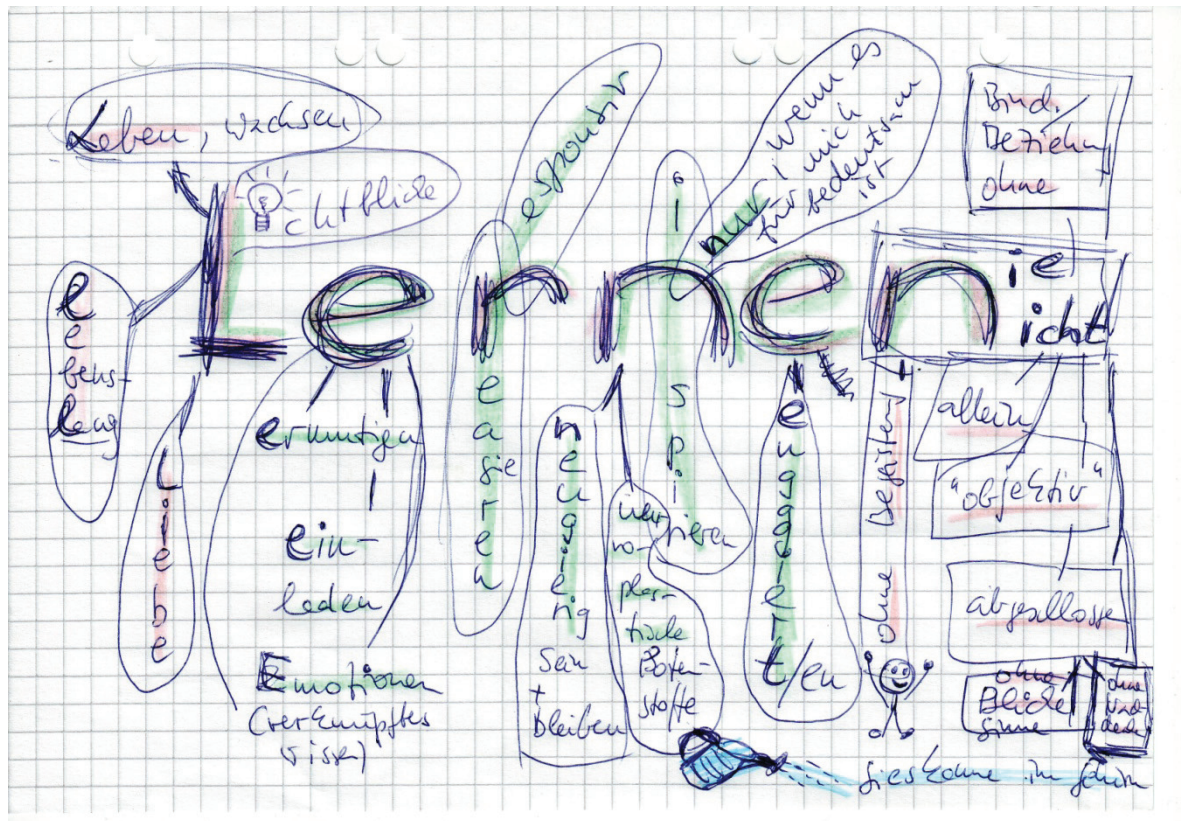 Leben, wachsen
chtblicke
Lernen
ie
icht
lebens-
lang
Liebe
ermutigen
ein-
laden
Emotionen
(verknüpftes
Wissen)
esponsiv
eagieren
neugierig
sein
+
bleiben
neu
ro-
plas-
tische
Boten-
stoffe
i
s
p
i
rieren
nur wenn es
für mich
bedeutsam
ist
engagiert/en
ohne Begeisterung
Bind./
Beziehn
ohne
allein
"objektiv"
abgeschlossen
ohne
Blicke
Sinne
ohne
Nach-
denken
Gieskanne im Gehirn